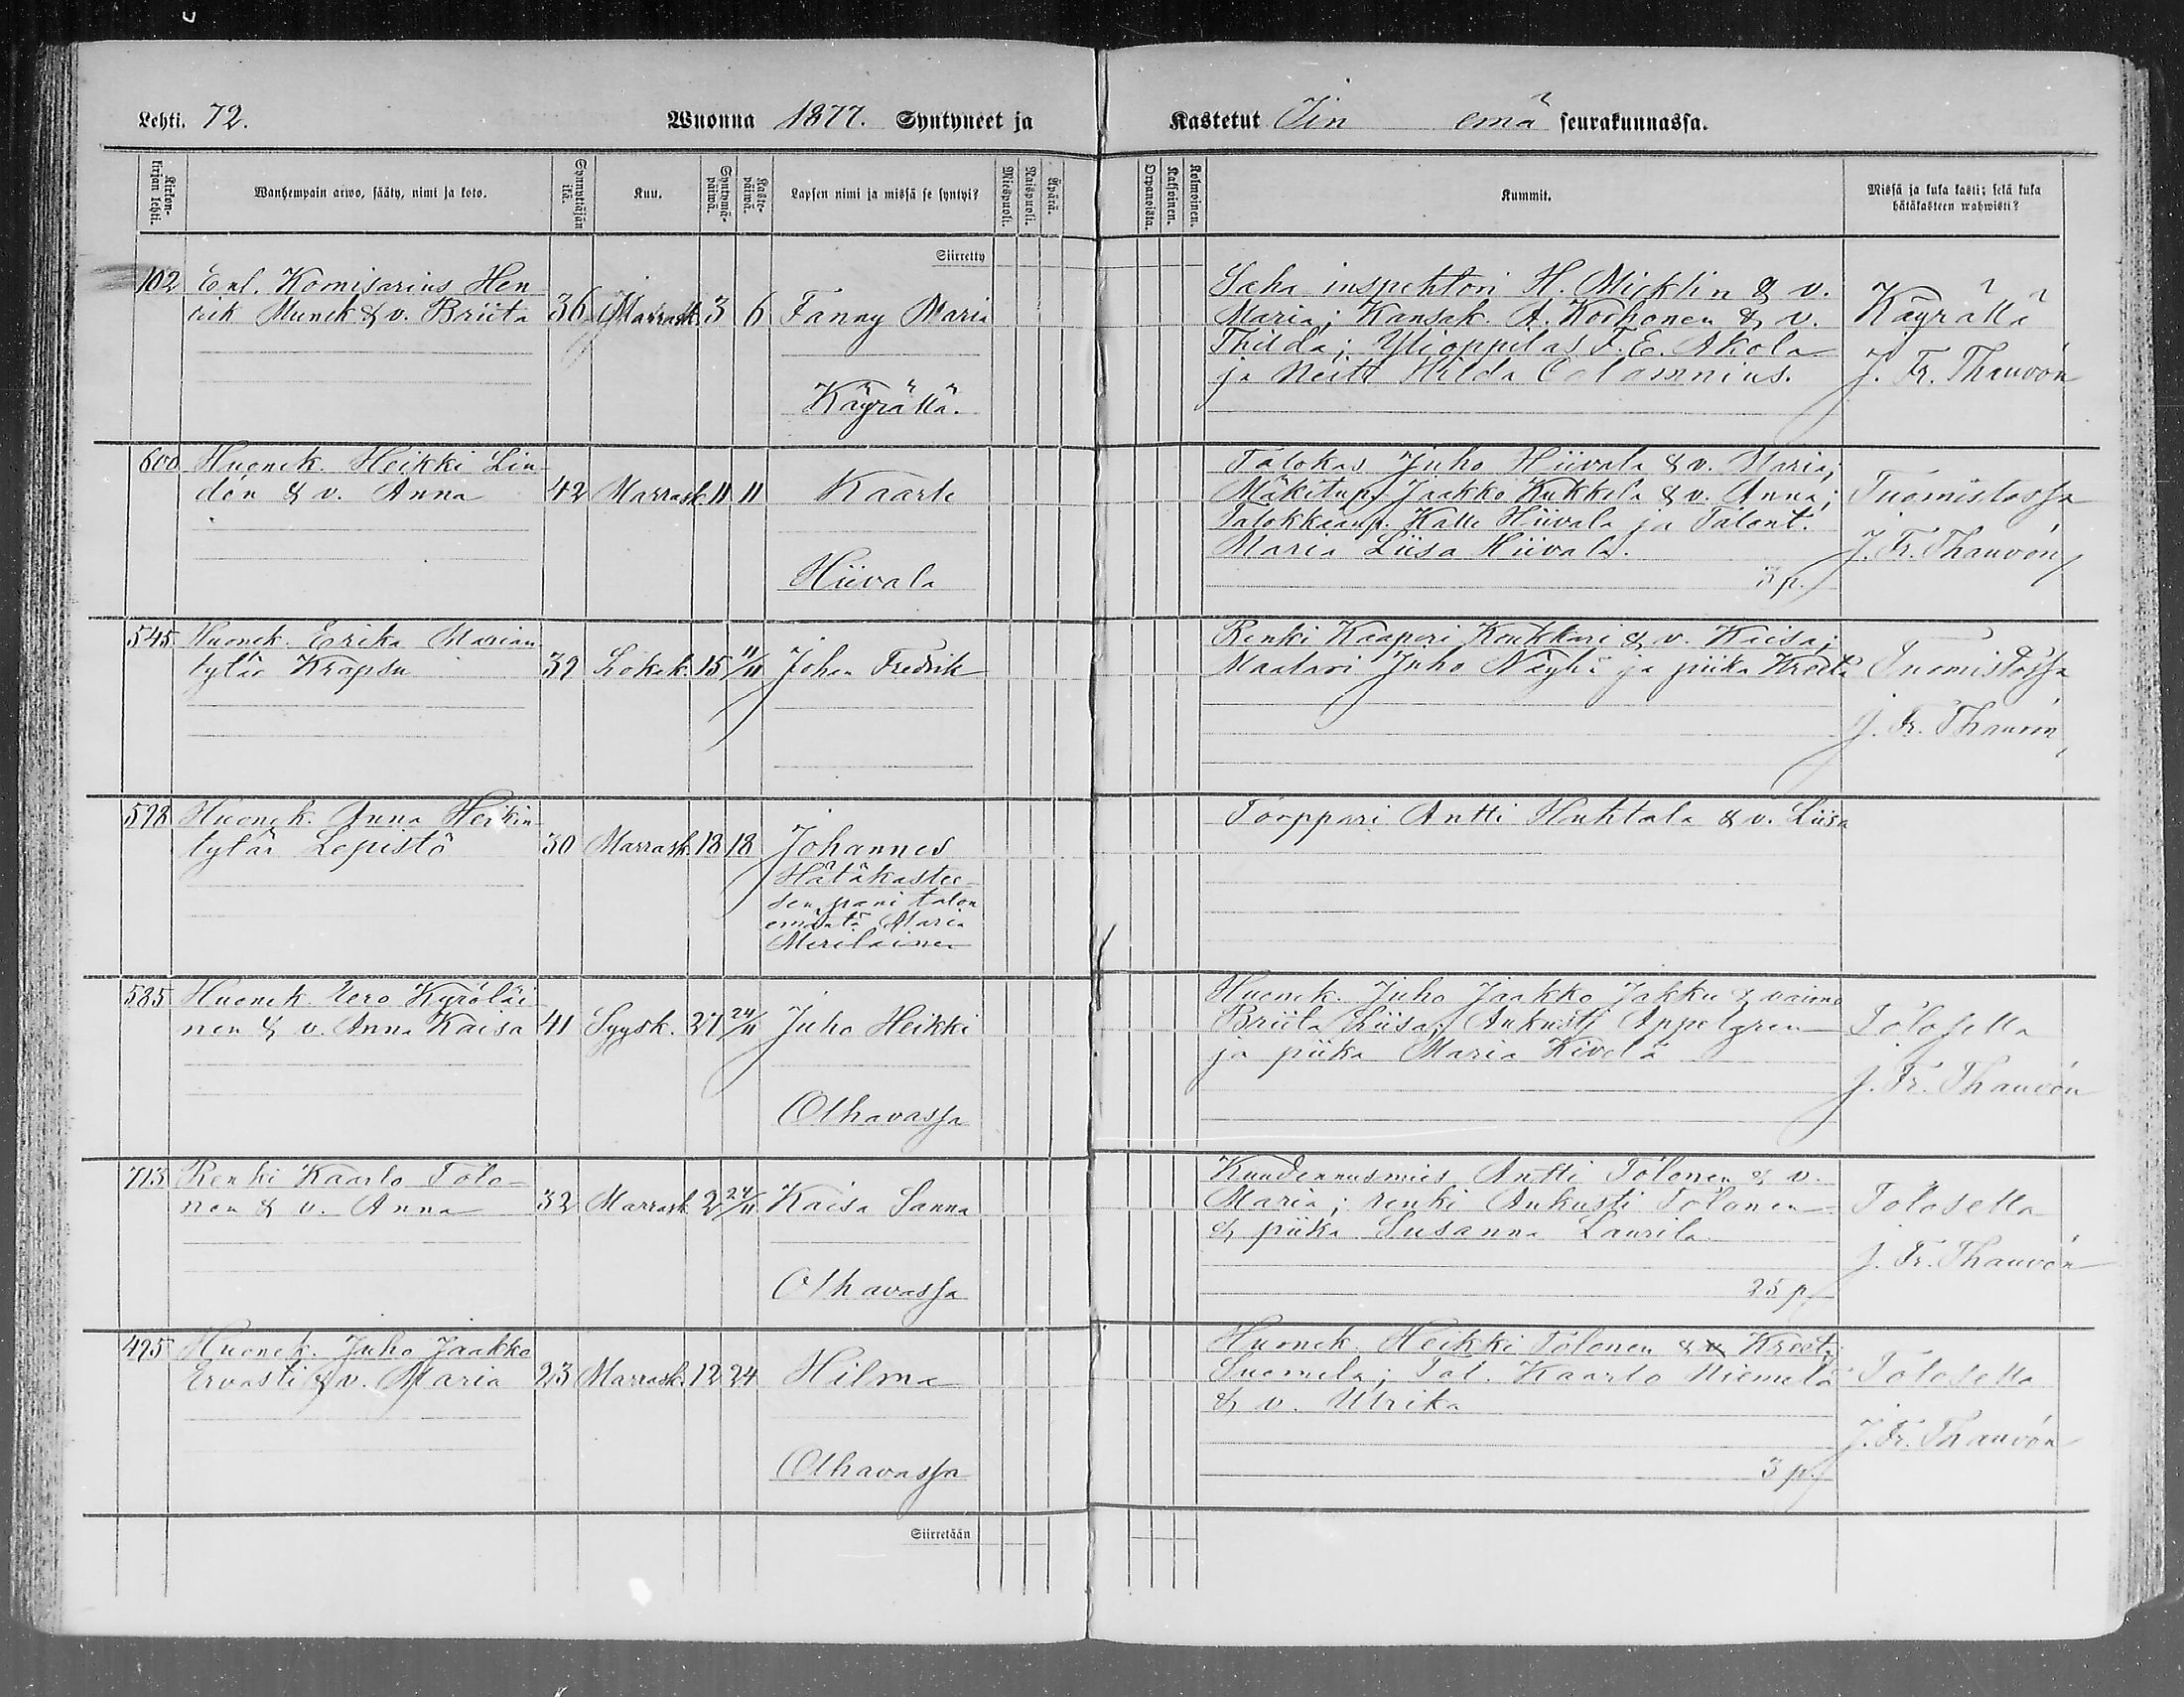 Lehti. 72. Wuonna 1877. Syntyneet ja
Kastetut Iin emä seurakunnassa.
Kirkonkirjan lehti.
Wanhempain arwo, sääty, nimi ja koto.
Synnyttäjän ikä.
Kuu.
Syntymäpäiwä.
Kastepäiwä.
Lapsen nimi ja missä se syntyi?
Miespuoli.
Naispuoli.
Äpärä.
Orpanoista.
Kaksoinen.
Kolmoinen.
Kummit.
Missä ja kuka kasti; sekä kuka hätäkasteen wahwisti?
Siirretty
102 Enl. Komisarius Hen
rik Munck & v. Briita 36 Marrask. 3 6 Fanny Maria
Käyrällä.
Saha inspehtori H. Micklin & v.
Maria; Kansak. A. Korhonen & v.
Thilda; Ylioppilas F. E. Akola
ja Neiti Hilda Calamnius.
Käyrällä
J. Fr. Thauvón
600 Huonek. Heikki Lin
dón & v. Anna 42 Marrask. 11 11 Kaarle
Hiivala
Talokas Juho Hiivala & v. Maria;
Mäkitup. Jaakko Kukkela & v. Anna;
Talokkaanp. Kalle Hiivala ja Talont.
Maria Liisa Hiivala.
3 p.
Tuomistossa
J. Fr. Thauvón
545 Huonek. Erika Marian
tytär Krapsu 32 Lokak. 15 11/11 Johan Fredrik
Renki Kaaperi Koukkari & v. Kaisa;
Maalari Juho Näyhä ja piika Kreeta
Tuomistossa
J. Fr. Thauvón
598 Huonek. Anna Heikin
tytär Lepistö 30 Marrask. 18 18 Johannes
Hätäkastee
sen pani talon
emäntä Maria
Meriläinen
Torppari Antti Huhtala & v. Liisa
585 Huonek. Eero Kyröläi
nen & v. Anna Kaisa 41 Syysk. 27 24/11 Juho Heikki
Olhavassa
Huonek. Juho Jaakko Jakku & vaimo
Briita Liisa; Aukusti Appelgren
ja piika Maria Kivelä
Tolosella
J. Fr. Thauvón
713 Renki Kaarlo Tolo-
nen & v. Anna 32 Marrask. 2 24/11 Kaisa Sanna
Olhavassa
Kuudennusmies Antti Tolonen & v.
Maria; renki Aukusti Tolonen
& piika Susanna Laurila
25 p.
Tolosella
J. Fr. Thauvón
495 Huonek. Juho Jaakko
Ervasti & v. Maria 23 Marrask. 12 24 Hilma
Olhavassa
Huonek. Heikki Tolonen & v Kreeta
Suomela; Tal. Kaarlo Niemelä
& v. Ulrika
3 p.
Tolosella
J. Fr. Thauvón
Siirretään